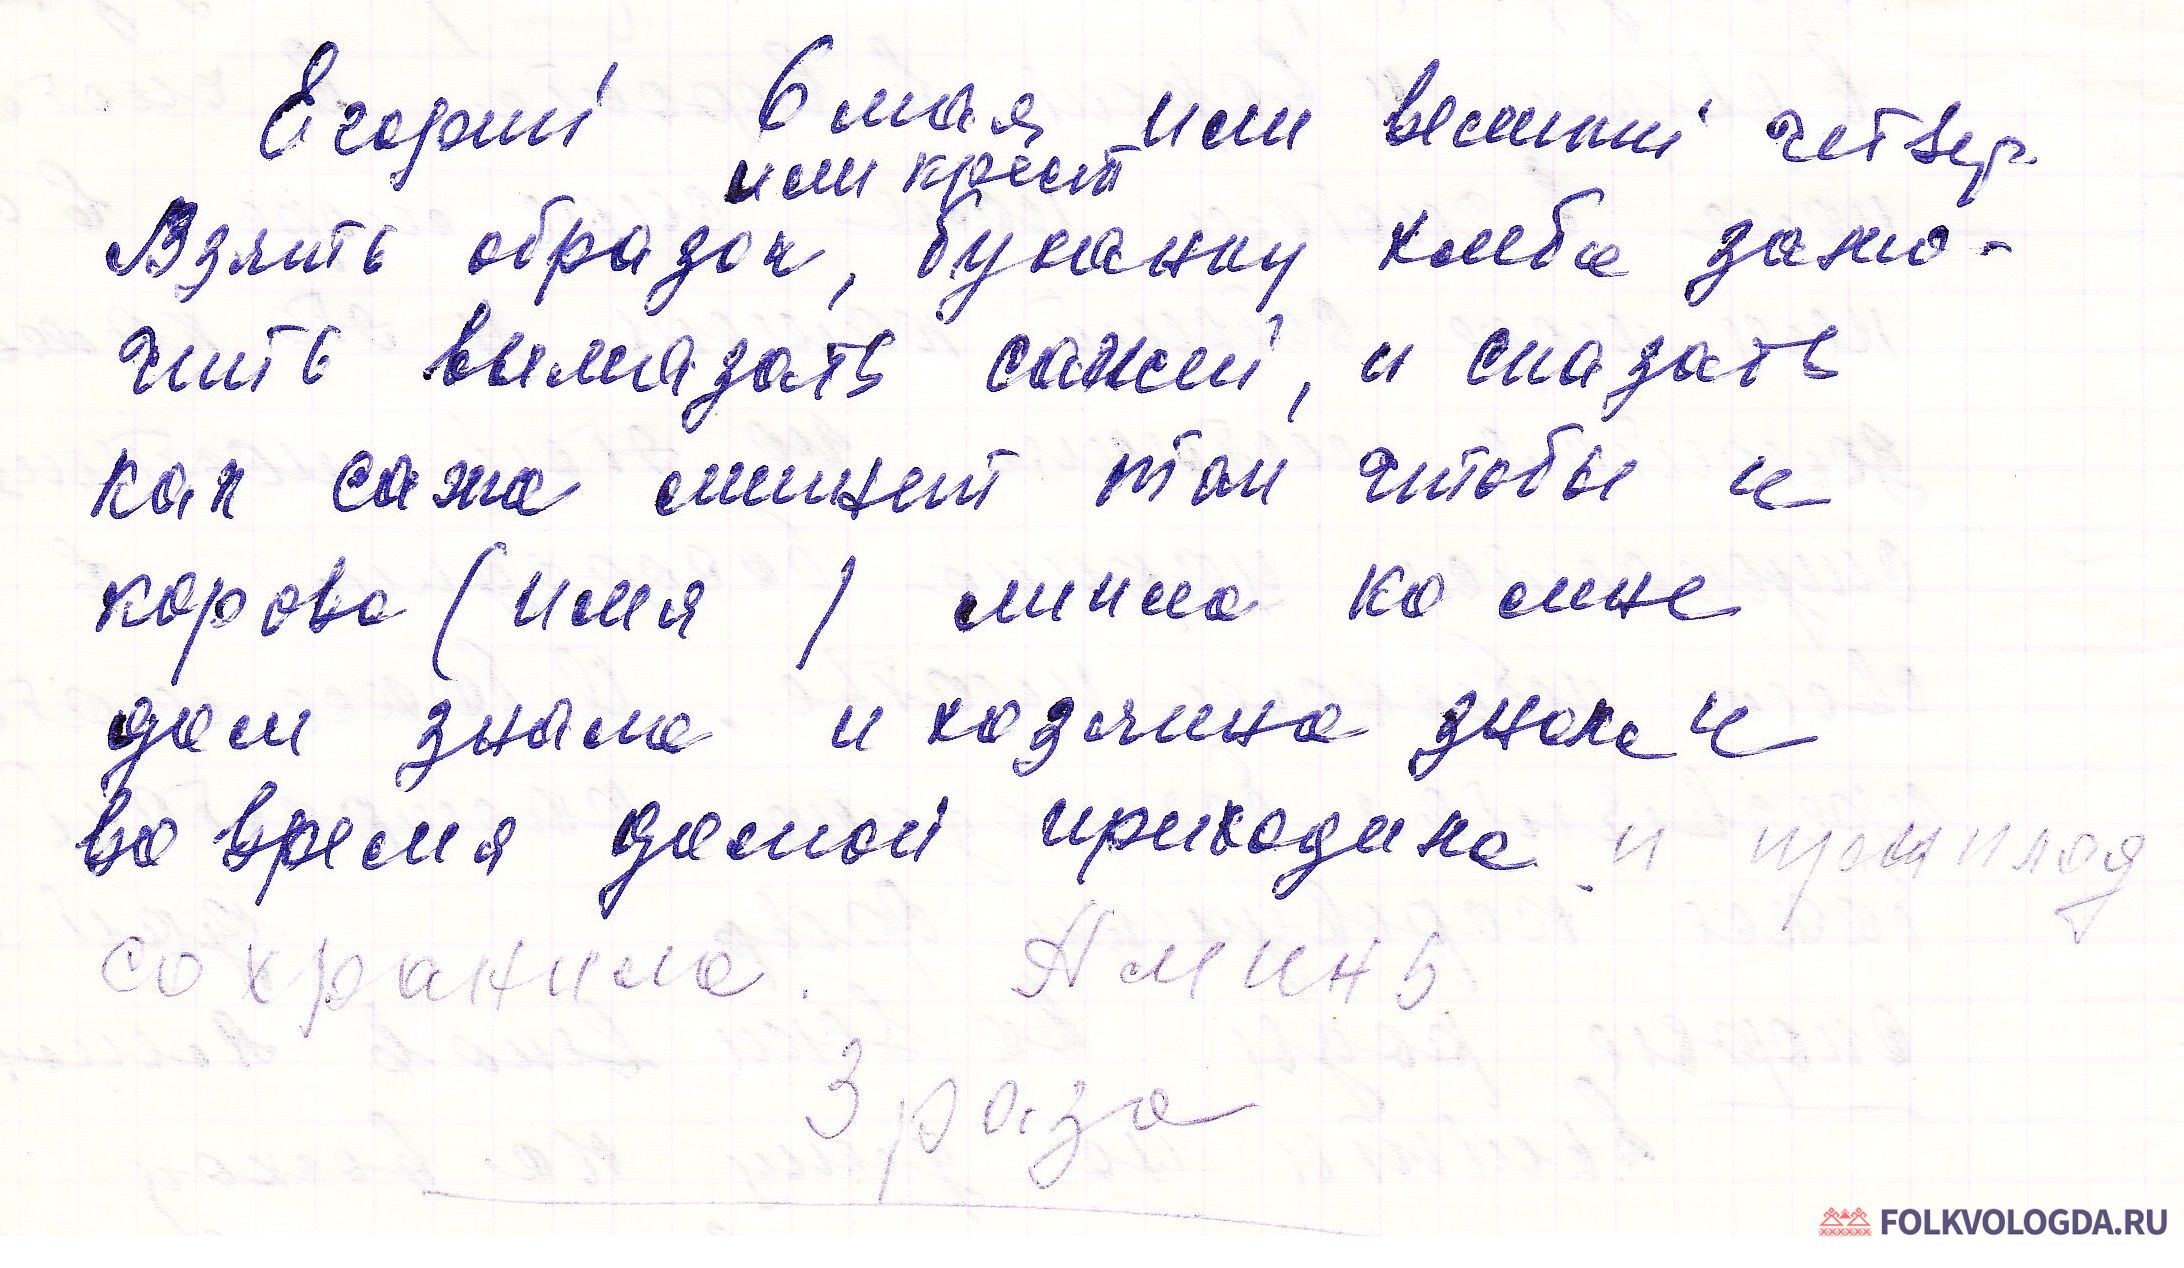 Егорий 6 мая или великий четвер
или крест
Взять образок, буханку хлеба замо-
чить вымазать сажей, и сказать
как сажа липнет так чтобы и
корова (имя ) липла ко мне
дом знала и хозяина знала и
во время домой приходила и приплод
сохранила. Аминь
3 раза
FOLKVOLOGDA.RU